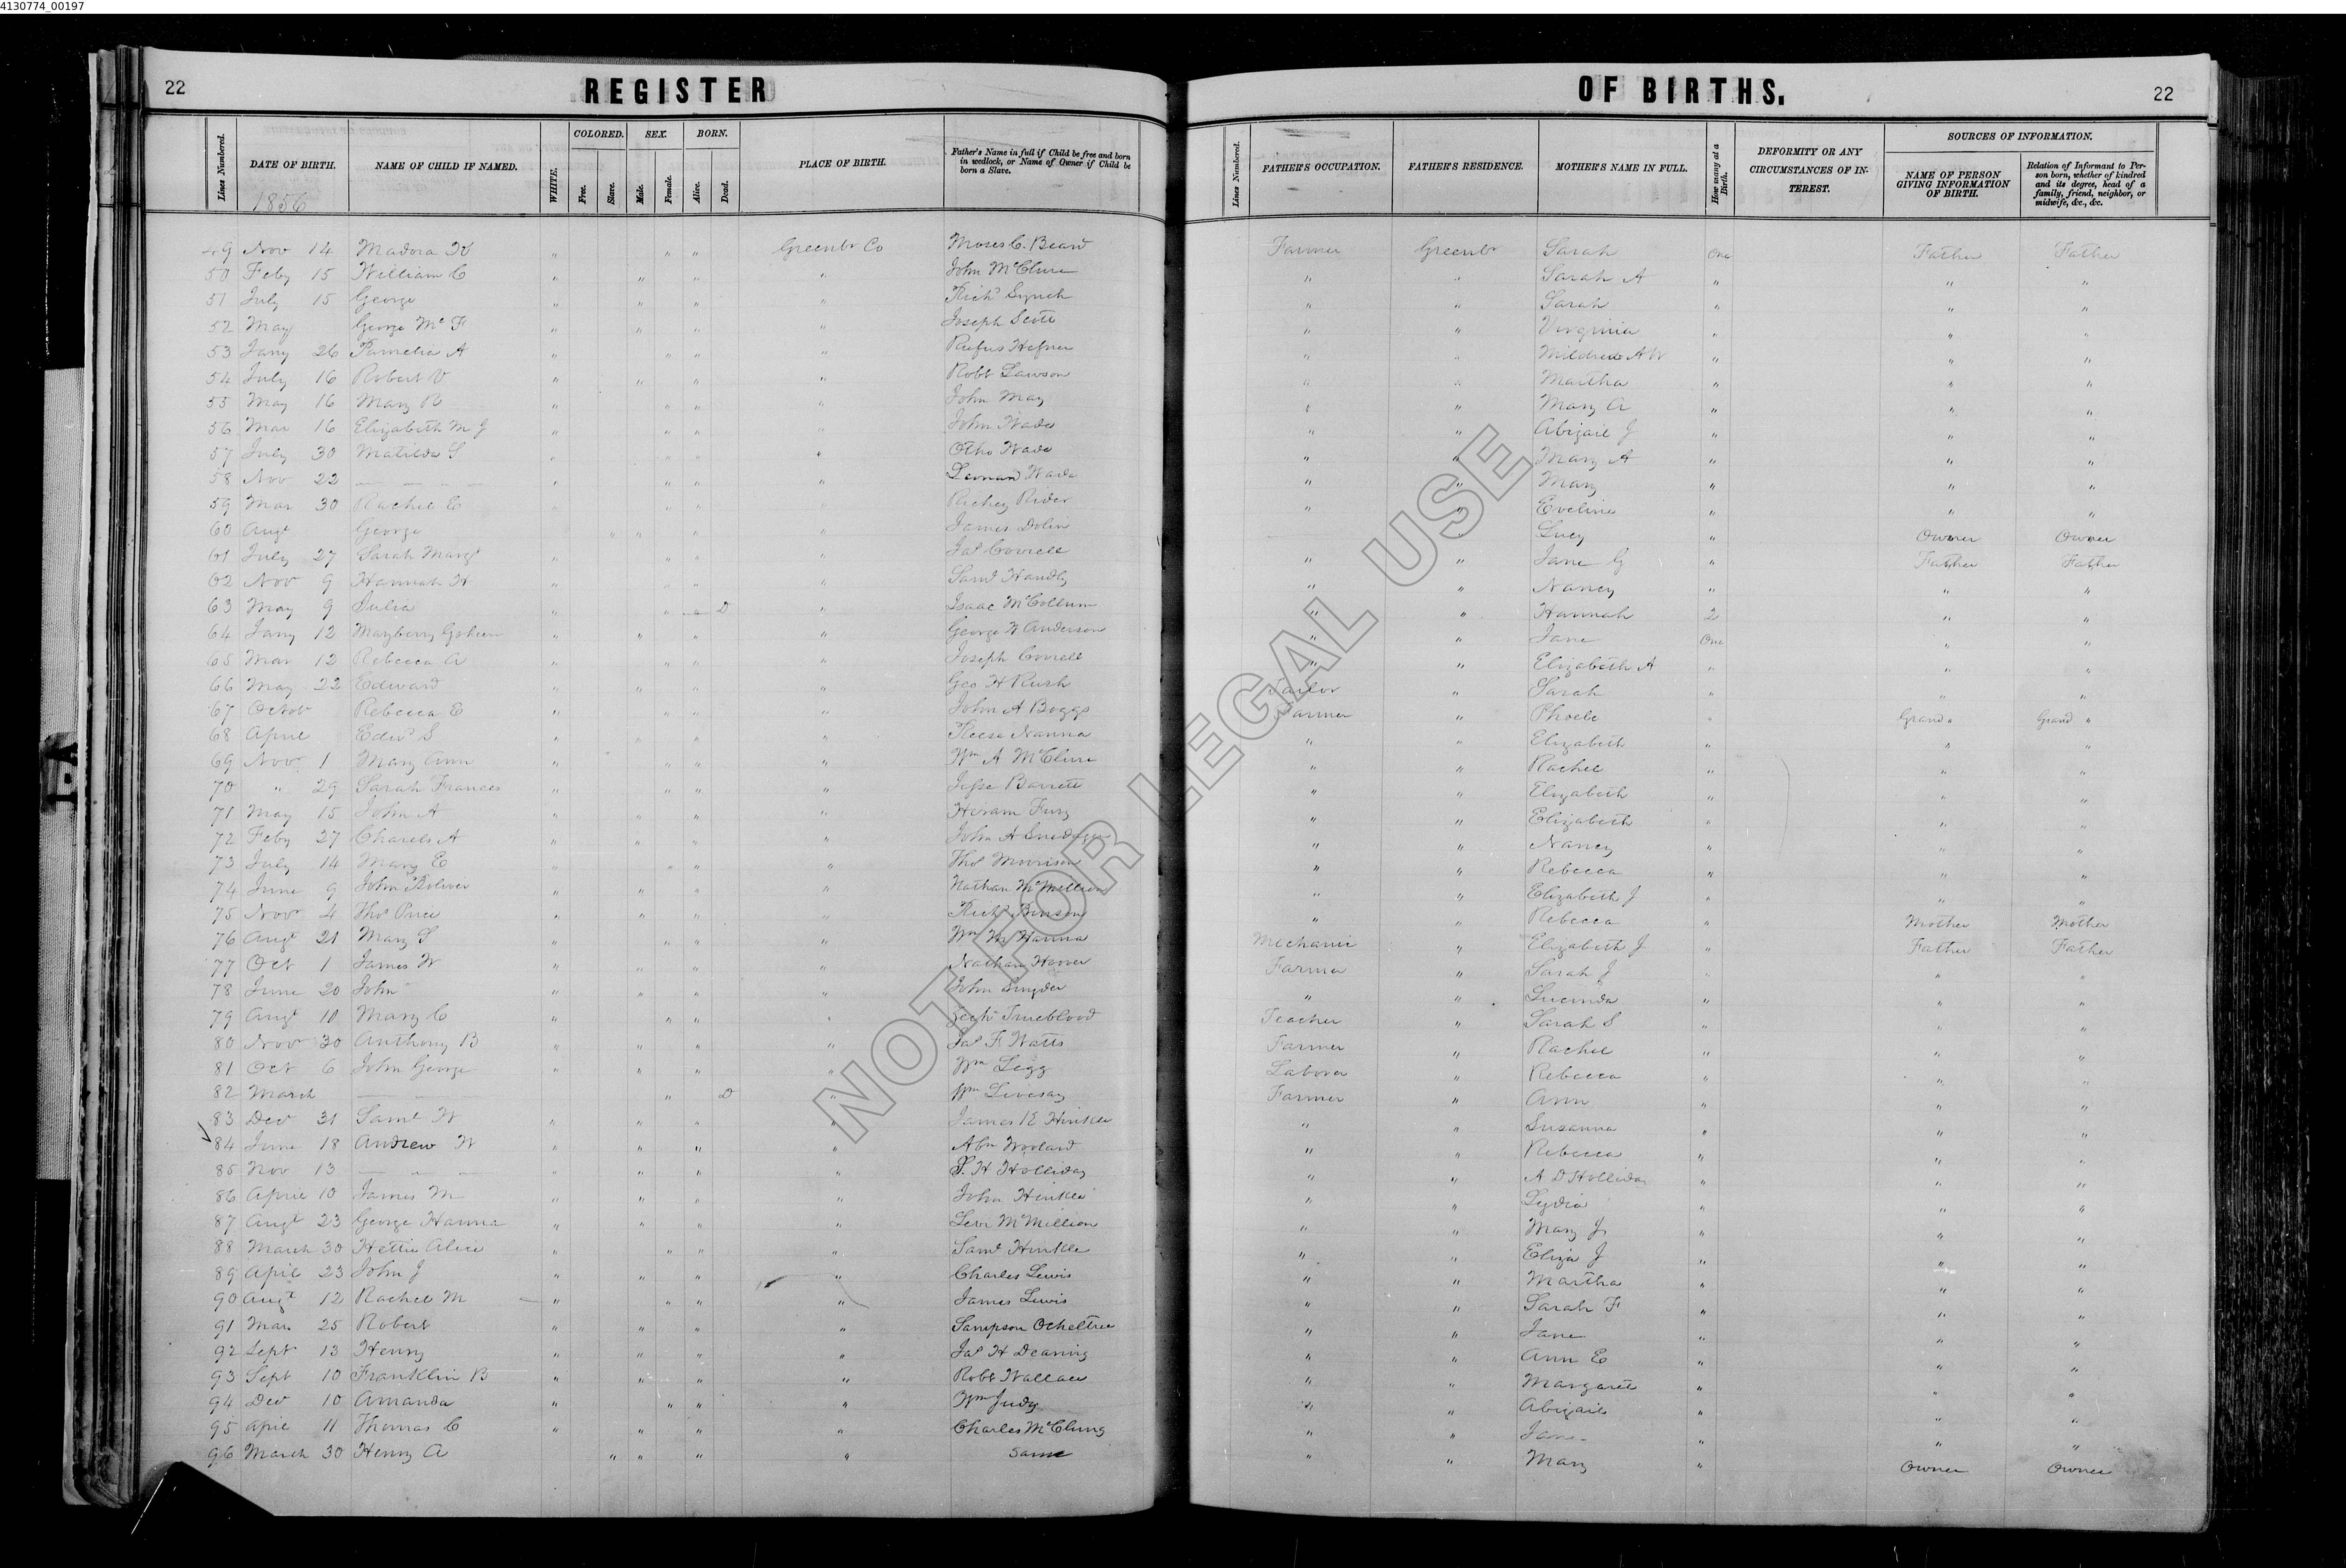 4130774_00197
22 REGISTER
OF BIRTHS. 22
Lines Numbered. DATE OF BIRTH. NAME OF CHILD IF NAMED. WHITE. COLORED. Free. Slave. SEX. Male. Female. BORN. Alive. Dead. PLACE OF BIRTH. Father's Name in full if Child be free and born in wedlock, or Name of Owner if Child be born a Slave.
Lines Numbered. FATHER'S OCCUPATION. FATHER'S RESIDENCE. MOTHER'S NAME IN FULL. How many at a Birth. DEFORMITY OR ANY CIRCUMSTANCES OF INTEREST. SOURCES OF INFORMATION. NAME OF PERSON GIVING INFORMATION OF BIRTH. Relation of Informant to Person born, whether of kindred and its degree, head of a family, friend, neighbor, or midwife, &c., &c.
1856
49 Nov 14 Madora " " " Greenbr Co Moses C. Beard Farmer Greenbr Sarah One Father Father
50 Feby 15 William C " " " " John McClure " " Sarah A " " "
51 July 15 George " " " " Richd Lynch " " Sarah " " "
52 May George Mc F " " " " Joseph Scott " " Virginia " " "
53 Jany 26 Pamelia A " " " " Rufus Hefner " " Mildred A W " " "
54 July 16 Robert V " " " " Robt Lawson " " Martha " " "
55 May 16 Mary R " " " " John May " " Mary A " " "
56 Mar 16 Elizabeth M J " " " " John Wade " " Abigail J " " "
57 July 30 Matilda S " " " " Otho Wade " " Mary A " " "
58 Nov 22 — — — " " " " Leonard Wade " Mary " " "
59 Mar 30 Rachel E " " " " Richey Rider " " Eveline " " "
60 Augt George " " " " James Dolin " Lucy " Owner Owner
61 July 27 Sarah Margt " " " " Jas Correll " " Jane G " Father Father
62 Nov 9 Hannah H " " " " Saml Handly " " Nancy " " "
63 May 9 Julia " " D " Isaac McCollum " " Hannah 2 " "
64 Jany 12 Mayberry " " " " George W Anderson " " Jane One " "
65 Mar 12 Rebecca A " " " " Joseph Correll " " Elizabeth A " " "
66 May 22 Edward " " " " Geo H Rush Tailor " Sarah " " "
67 Octob Rebecca E " " " " John A Boggs Farmer " Phoebe " Grand " Grand "
68 April Edwd S " " " " Reese Nanna " " Elizabeth " " "
69 Nov 1 Mary Ann " " " " Wm A McClure " " Rachel " " "
70 " 29 Sarah Frances " " " " Jesse Barrett " " Elizabeth " " "
71 May 15 John A " " " " Hiram Fury " " Elizabeth " " "
72 Feby 27 Charels A " " " " John A " " Nancy " " "
73 July 14 Mary E " " " " Thos Morrison " " Rebecca " " "
74 June 9 John Boliver " " " " Nathan McMillion " " Elizabeth J " " "
75 Nov 4 Thos Price " " " " Richd " " Rebecca " Mother Mother
76 Augt 21 Mary S " " " " Wm M Hanna Mechanic " Elizabeth J " Father Father
77 Oct 1 James W " " " " Nathan Hoover Farmer " Sarah J " " "
78 June 20 John " " " " John Snyder " " Lucinda " " "
79 Augt 10 Mary C " " " " Zech Trueblood Teacher " Sarah S " " "
80 Nov 30 Anthony B " " " " Jas F Watts Farmer " Rachel " " "
81 Oct 6 John George " " " " Wm Legg Laborer " Rebecca " " "
82 March — " " D " Wm Livesay Farmer " Ann " " "
83 Dec 31 Saml W " " " " James E Hinkle " " Susanna " " "
84 June 18 Andrew W " " " " Abm Woolard " " Rebecca " " "
85 Nov 13 — " — " " " " S. H Holliday " " A D Holliday " " "
86 April 10 James M " " " " John Hinkle " " Lydia " " "
87 Augt 23 George Hanna " " " " Levi McMillion " " Mary J " " "
88 March 30 Hettie Alice " " " " Saml Hinkle " " Eliza J " " "
89 April 23 John J " " " " Charles Lewis " " Martha " " "
90 Augt 12 Rachel M " " " " James Lewis " " Sarah F " " "
91 Mar 25 Robert " " " " Sampson Ocheltree " " Jane " " "
92 Sept 13 Henry " " " " Jas H Dearing " " Ann E " " "
93 Sept 10 Franklin B " " " " Robt Wallace " " Margaret " " "
94 Dec 10 Amanda " " " " Wm Judy " " Abigail " " "
95 April 11 Thomas C " " " " Charles McClung " " Jane " " "
96 March 30 Henry A " " " " Same " " Mary " Owner Owner
NOT FOR LEGAL USE